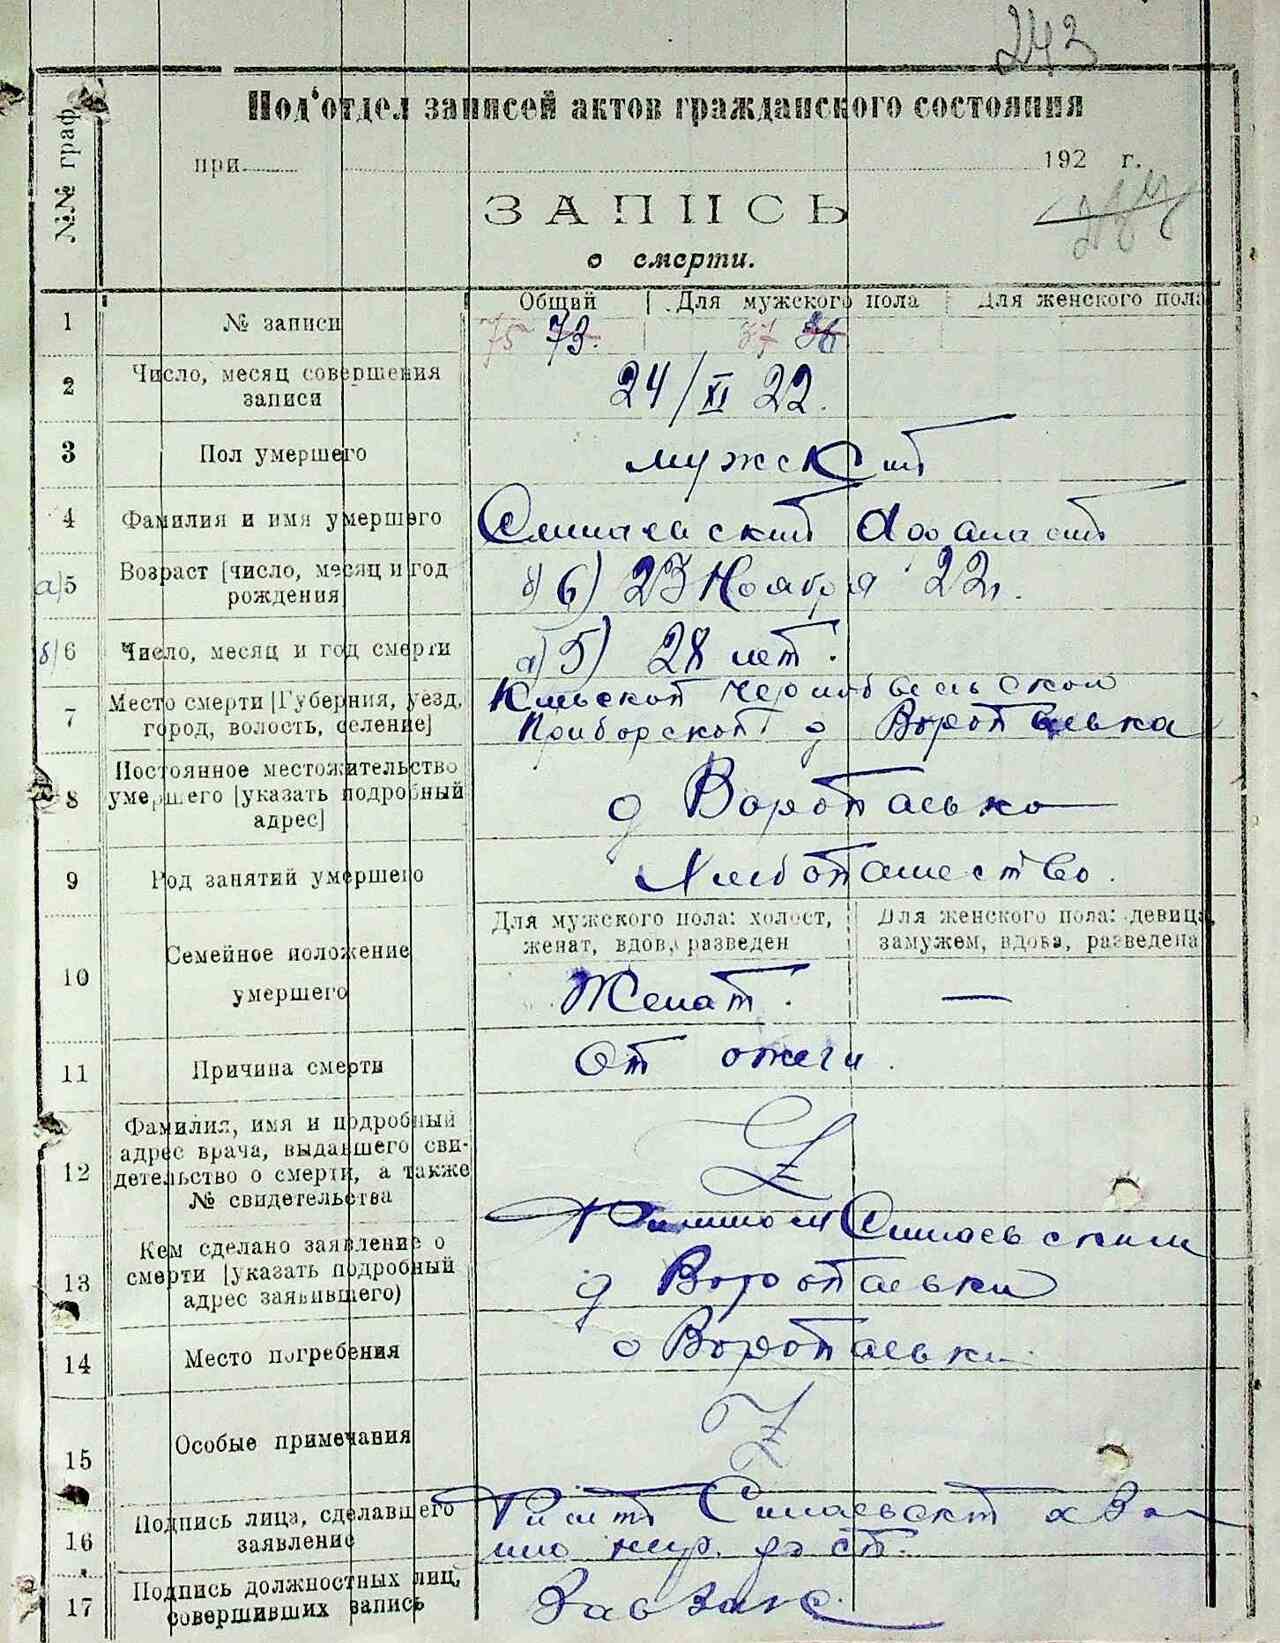 243
Под'отдел записей актов гражданского состояния
при 192 г.
№№ граф.
ЗАПИСЬ
о смерти.
Общий Для мужского пола Для женского пола
1 № записи 75 73. 37 36
2 Число, месяц совершения
записи
24/XI 22.
3 Пол умершего мужский
4 Фамилия и имя умершего Синаевский Афанасий
а) 5 Возраст [число, месяц и год
рождения
б) 6) 23 Ноября 22 г.
б) 6 Число, месяц и год смерти а) 5) 28 лет.
7 Место смерти [Губерния, уезд,
город, волость, селение]
Киевской Чернобыльской
Приборской д Воропаевка
8 Постоянное местожительство
умершего [указать подробный
адрес]
д Воропаевка
9 Род занятий умершего Хлебопашество.
10 Семейное положение
умершего
Для мужского пола: холост,
женат, вдов, разведен
Для женского пола: девица,
замужем, вдова, разведена
Женат. —
11 Причина смерти От
12 Фамилия, имя и подробный
адрес врача, выдавшего сви-
детельство о смерти, а также
№ свидетельства
Z
13 Кем сделано заявление о
смерти [указать подробный
адрес заявившего)
Синаевским
д Воропаевки
14 Место погребения Воропаевки
15 Особые примечания Z
16 Подпись лица, сделавшего
заявление
17 Подпись должностных лиц,
совершивших запись
Завзакс